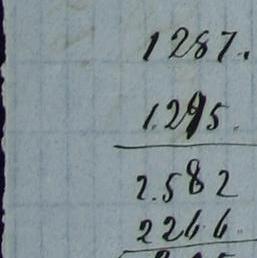 1287.
1.295.
2.582
2266.